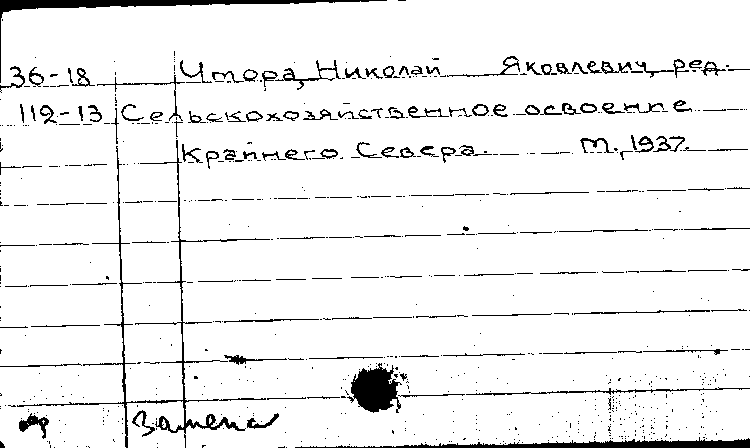 36-18 Чтора, Николай Яковлевич, ред.
112-13 Сельскохозяйственное освоение
Крайнего Севера. М., 1937.
Замена